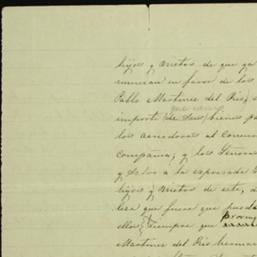 hijos y nietos de que ya
renuncian en favor de los
Pablo Martinez del Rio, 
que cuyo
importe de sus bienes pa
los acreedores al concur
compañia; y los Señores
y salvo a la expresada
hijos y nietos de este, d
lesa que fuera que pueda
ellos siempre que
Martinez del Rio herman